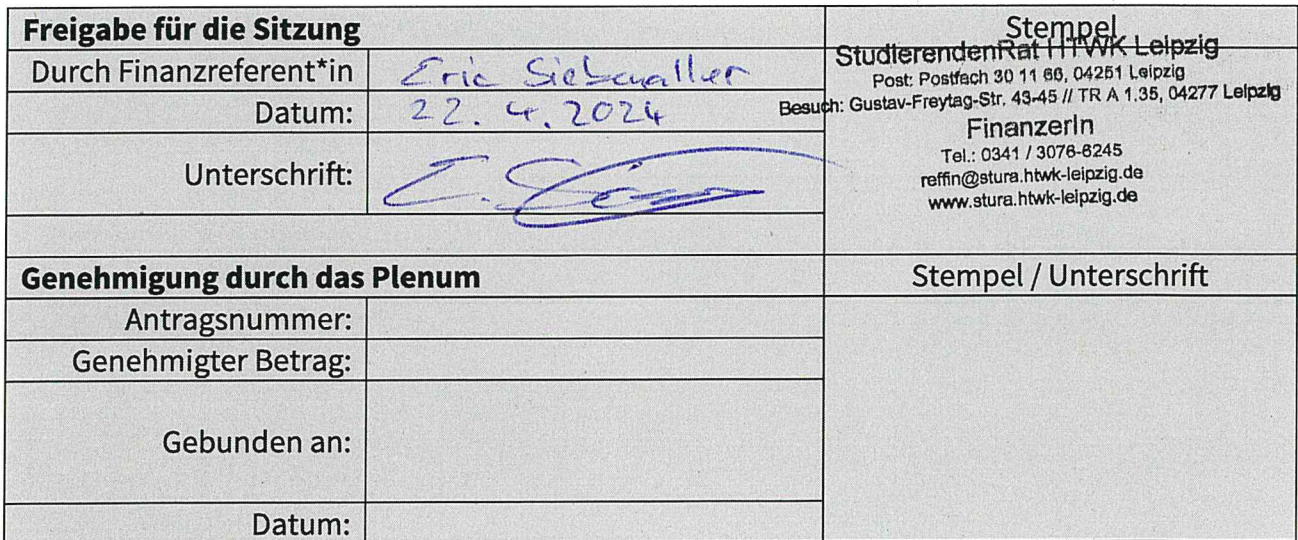 Freigabe für die Sitzung
Stempel
Durch Finanzreferent*in
Eric
Datum:
22. 4. 2024
Unterschrift:
StudierendenRat HTWK Leipzig
Post: Postfach 30 11 66, 04251 Leipzig
Besuch: Gustav-Freytag-Str. 43-45 // TR A 1.35, 04277 Leipzig
FinanzerIn
Tel.: 0341 / 3076-6245
reffin@stura.htwk-leipzig.de
www.stura.htwk-leipzig.de
Genehmigung durch das Plenum
Stempel / Unterschrift
Antragsnummer:
Genehmigter Betrag:
Gebunden an:
Datum: